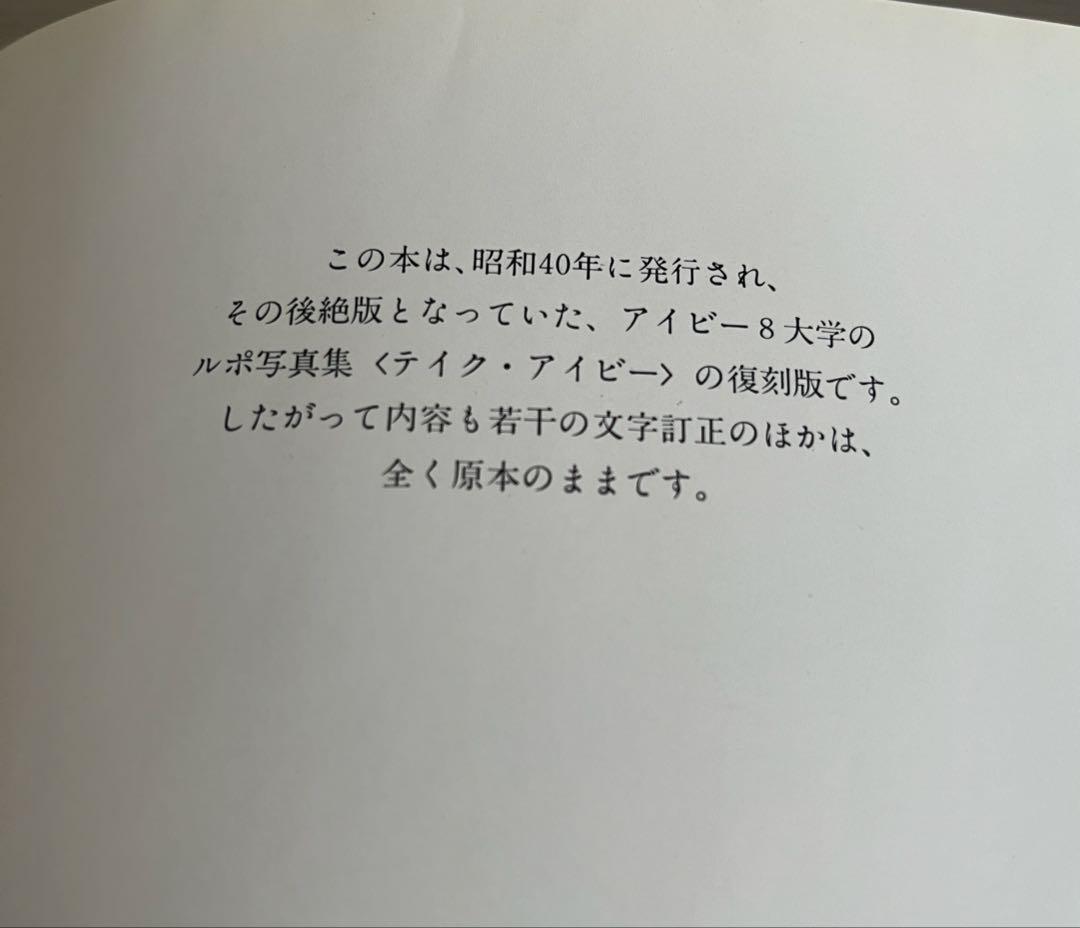 この本は、昭和40年に発行され、
その後絶版となっていた、アイビー8大学の
ルポ写真集〈テイク・アイビー〉の復刻版です。
したがって内容も若干の文字訂正のほかは、
全く原本のままです。